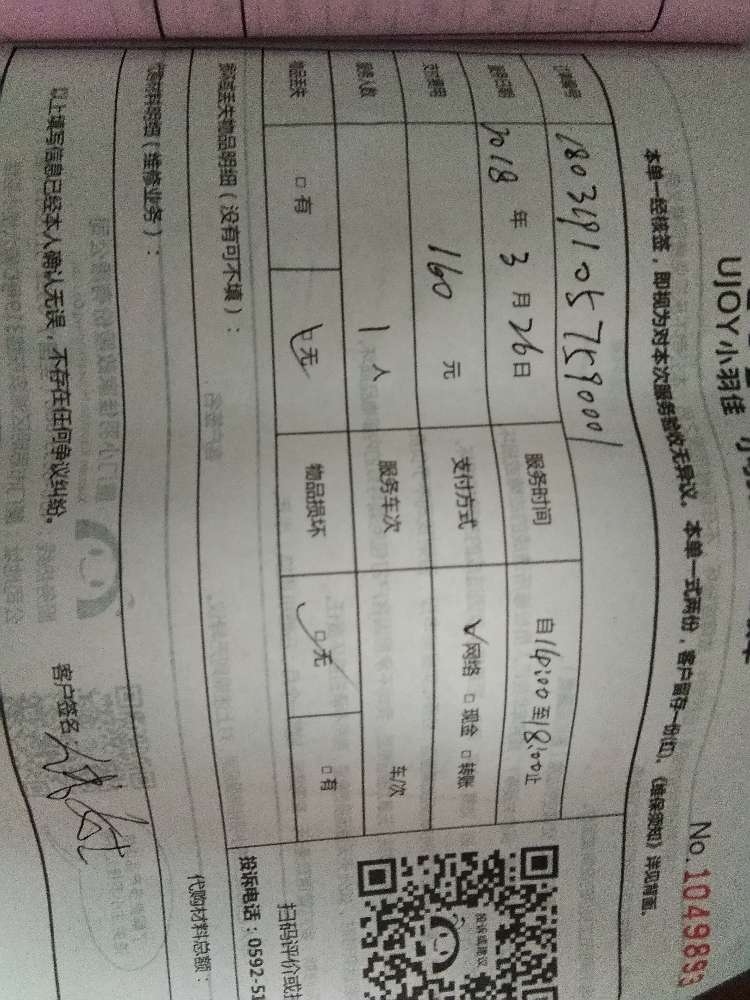 UJOY小羽佳
No.1049893
本单一经核签，即视为对本次服务验收无异议。本单一式两份，客户留存一份(红)。《维保须知》详见背面。
订单编号 180319105759001
服务日期 2018年3月26日 服务时间 自14:00至18:00止
支付费用 160元 支付方式 网络 □现金 □转账
服务人数 1人 服务车次 车次
物品丢失 □有 □无 物品损坏 □无 □有
损坏丢失物品明细（没有可不填）：
代购材料明细（维修业务）：
代购材料总额：
以上填写信息已经本人确认无误，不存在任何争议纠纷。
客户签名：
投诉建议
扫码评价或投
投诉电话：0592-51